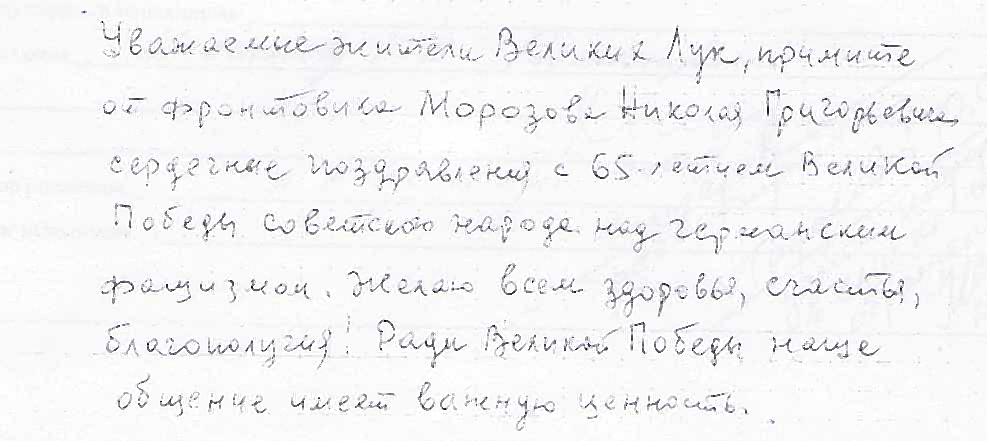 Уважаемые жители Великих Лук, примите
от фронтовика Морозова Николая Григорьевича
сердечные поздравления с 65-летием Великой
Победы советского народа над германским
фашизмом. Желаю всем здоровья, счастья,
благополучия! Ради Великой Победы наше
общение имеет важную ценность.